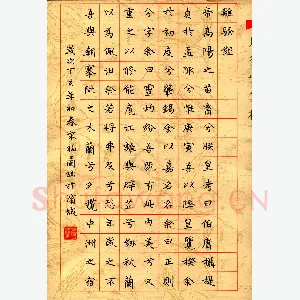 離騷經
帝高陽之苗裔兮朕皇考曰伯庸攝提
貞於孟陬兮惟庚寅吾以降皇覽揆余
於初度兮肇錫余以嘉名名余曰正則
兮字余曰靈均紛吾既有此內美兮又
重之以修能扈江離與辟芷兮紉秋蘭
以為佩汩余若將弗及兮恐年歲之不
吾與朝搴阰之木蘭兮夕攬中洲之宿
歲次丁亥年初春